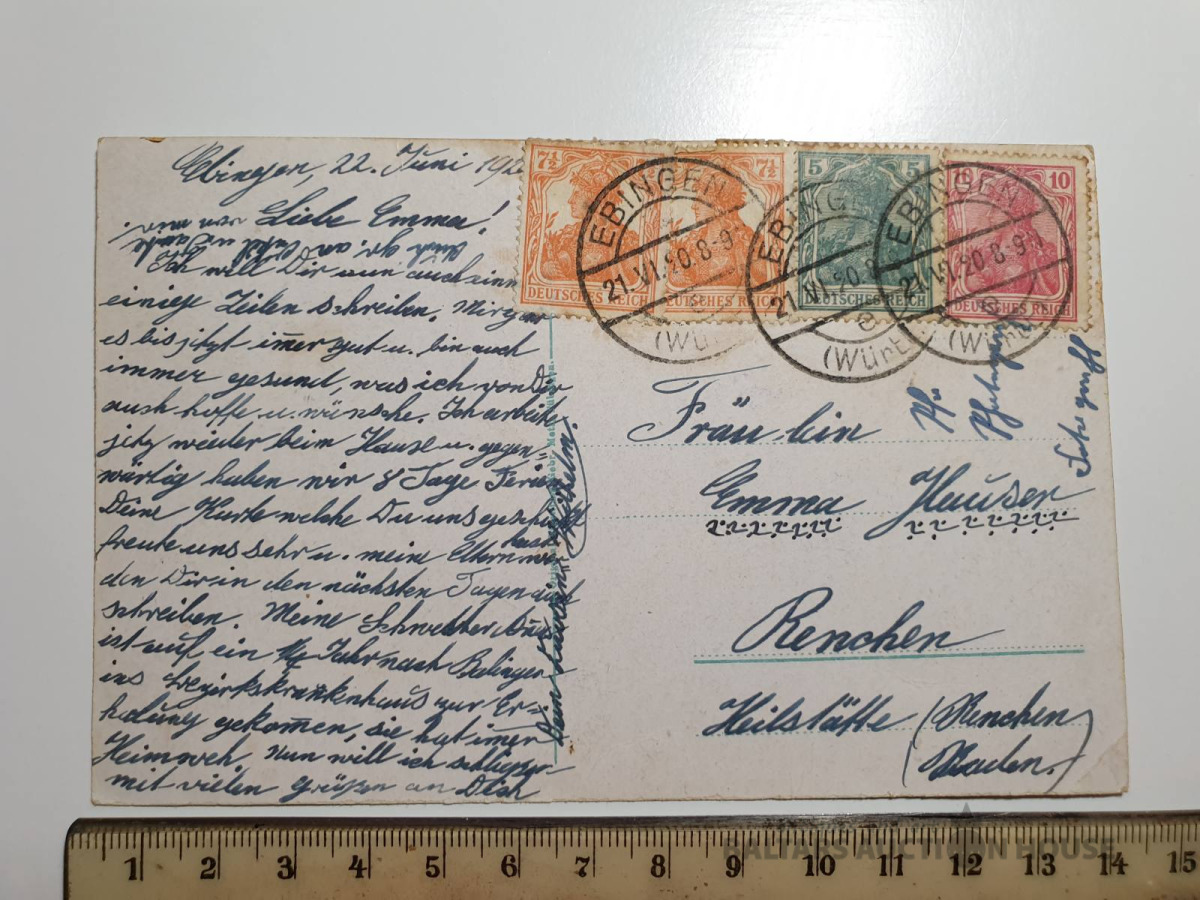 Ebingen, 22. Juni 192
Liebe Emma!
Ich will Dir nun auch einn
einige Zeilen schreiben. Mir geh
es bis jetzt im̄er gut u. bin auch
immer gesund, was ich von Dir
auch hoffe u. wünsche. Ich arbeite
jetz weider beim Hause u. gegen=
wärtig haben wir 8 Tage Ferien
Deine Karte welche Du uns geschickt
hast
freute uns sehr u. meine Eltern wer
den Dir in den nächsten Tagen auch
schreiben. Meine Schwester
ist auf ein ¼ Jahr nach Balingen
ins Bezirkskrankenhaus zur Er=
holung gekom̄en, sie hat im̄er
Heimweh. Nun will ich schließen
mit vielen Grüßen an Dich
Dein Cousin Wilhelm.
7½ 7½
DEUTSCHES REICH
7½
DEUTSCHES REICH
5 5
DEUTSCHES REICH
10 10
DEUTSCHES REICH
EBINGEN
21.VI.20.8-9
(Württ
EBINGEN
21.VI.20.8
e
(Württ
EBINGEN
21.VI.20.8-9
e
(Württ
Fräulein
Emma Hauser
Renchen
Heilstätte (Renchen
Baden.)
1 2 3 4 5 6 7 8 9 10 11 12 13 14 15
BALTARS AUCTION HOUSE